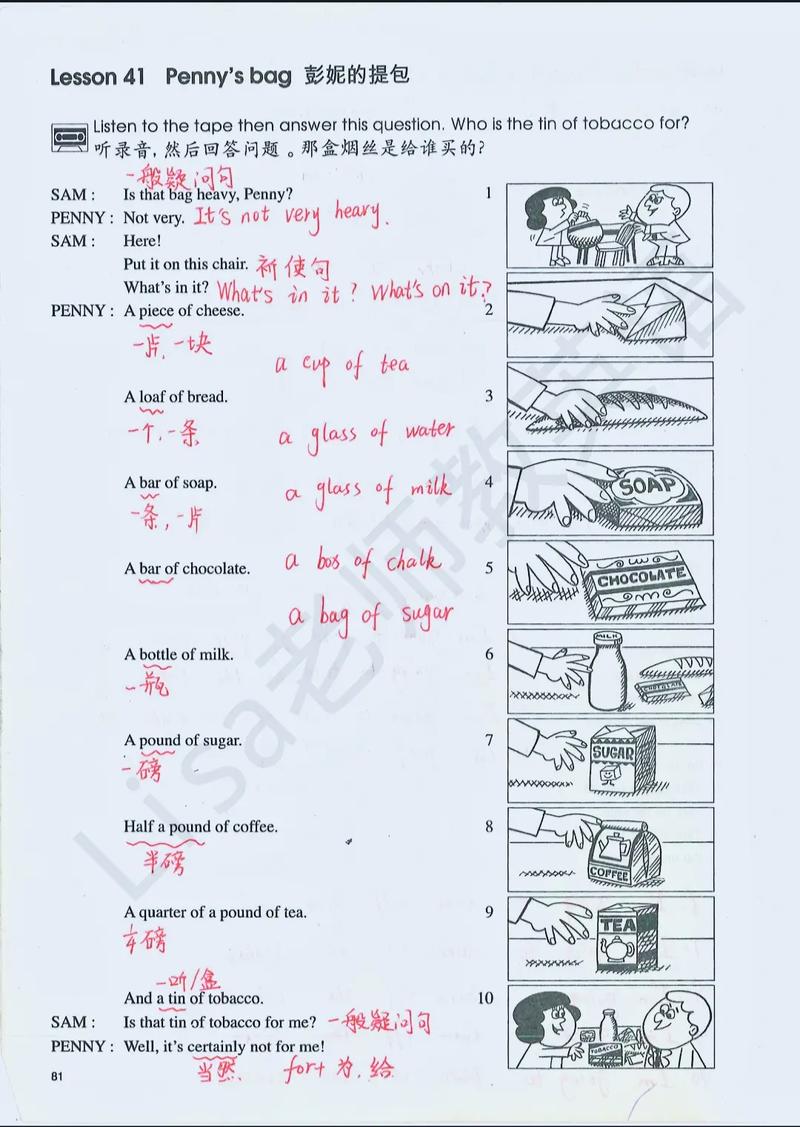 Lesson 41 Penny's bag 彭妮的提包
Listen to the tape then answer this question. Who is the tin of tobacco for?
听录音，然后回答问题。那盒烟丝是给谁买的？
一般疑问句
SAM : Is that bag heavy, Penny? 1
PENNY : Not very. It's not very heavy.
SAM : Here!
Put it on this chair. 祈使句
What's in it? What's in it? What's on it?
PENNY : A piece of cheese. 2
一片, 一块
a cup of tea
A loaf of bread. 3
一个, 一条
a glass of water
A bar of soap. 4
SOAP
一条, 一片
a glass of milk
A bar of chocolate. 5
CHOCOLATE
a box of chalk
a bag of sugar
A bottle of milk. 6
MILK
CHOCOLATE
一瓶
A pound of sugar. 7
SUGAR
一磅
Half a pound of coffee. 8
COFFEE
半磅
A quarter of a pound of tea. 9
TEA
1/4磅
一听/盒
And a tin of tobacco. 10
TOBACCO
SAM : Is that tin of tobacco for me? 一般疑问句
PENNY : Well, it's certainly not for me!
当然 for+ 为, 给
81
Lisa老师教英语